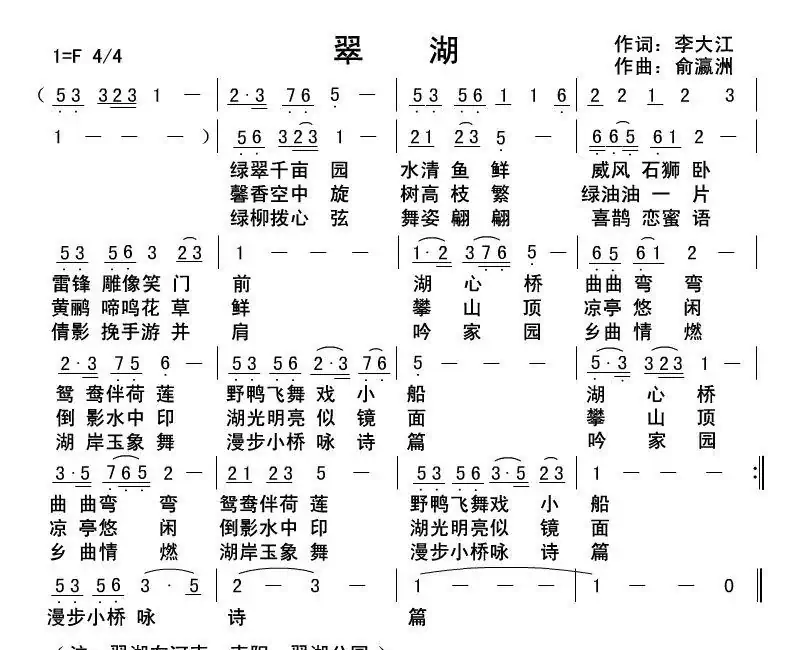 1=F 4/4 翠 湖 作词：李大江
作曲：俞瀛洲
（ 53 323 1 — | 2·3 76 5 — | 53 56 1 1 6 | 2 2 1 2 3 |
1 — — — ） | 56 323 1 — | 21 23 5 — | 665 61 2 — |
绿翠千亩 园 水清 鱼 鲜 威风 石狮 卧
馨香空中 旋 树高 枝 繁 绿油油 一 片
绿柳拨心 弦 舞姿 翩 翩 喜鹊 恋蜜 语
53 56 3 23 | 1 — — — | 1·2 376 5 — | 65 61 2 — |
雷锋 雕像笑 门 前 湖 心 桥 曲曲 弯 弯
黄鹂 啼鸣花 草 鲜 攀 山 顶 凉亭 悠 闲
倩影 挽手游 并 肩 吟 家 园 乡曲 情 燃
2·3 75 6 — | 53 56 2·3 76 | 5 — — — | 5·3 323 1 — |
鸳 鸯伴荷 莲 野鸭飞舞 戏 小 船 湖 心 桥
倒 影水中 印 湖光明亮 似 镜 面 攀 山 顶
湖 岸玉象 舞 漫步小桥 咏 诗 篇 吟 家 园
3·5 765 2 — | 21 23 5 — | 53 56 3·5 23 | 1 — — — :‖
曲 曲弯 弯 鸳鸯伴荷 莲 野鸭飞舞戏 小 船
凉 亭悠 闲 倒影水中 印 湖光明亮似 镜 面
乡 曲情 燃 湖岸玉象 舞 漫步小桥咏 诗 篇
53 56 3· 5 | 2 — 3 — | 1 — — — | 1 — — 0 ‖
漫步小桥 咏 诗 篇